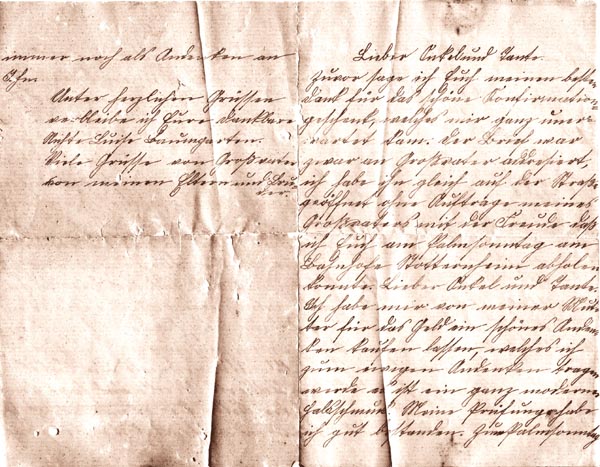 Lieber Onkel und Tante.
Zuvor sage ich Euch meinen besten
Dank für das schöne Konfirmations
geschenk, welches mir ganz uner-
wartet kam. Der Brief war
zwar an Großvater adresiert,
ich habe ihn gleich auf der Straße
geöffnet ohne Auftrage meines
Großvaters mit der Freude daß
ich Euch am Palmsonntag am
Bahnhofe Stotternheim abholen
konnte. Lieber Onkel und Tante.
Ich habe mir von meiner Mut-
ter für das Geld ein schönes Anden-
ken kaufen lassen, welches ich
zum ewigen Andenken tragen
werde es ist ein ganz moderner
Halsschmuck. Meine Prüfung habe
ich gut bestanden. Zum Palmsonntag
immer noch als Andenken an
Ihn.
Unter herzlichen Grüssen
verbleibe ich Eure dankbare
Nichte Luise Baumgarten.
Viele Grüsse von Großvater
von meinen Eltern und Bru
der.